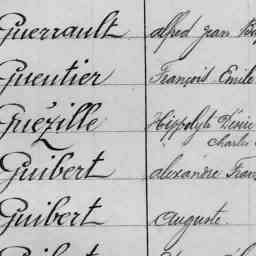 Guerrault Alfred Jean
Gueutier François Emile
Guézille Hippolyte Désiré
Charles
Guibert Alexandre
Guibert Auguste.